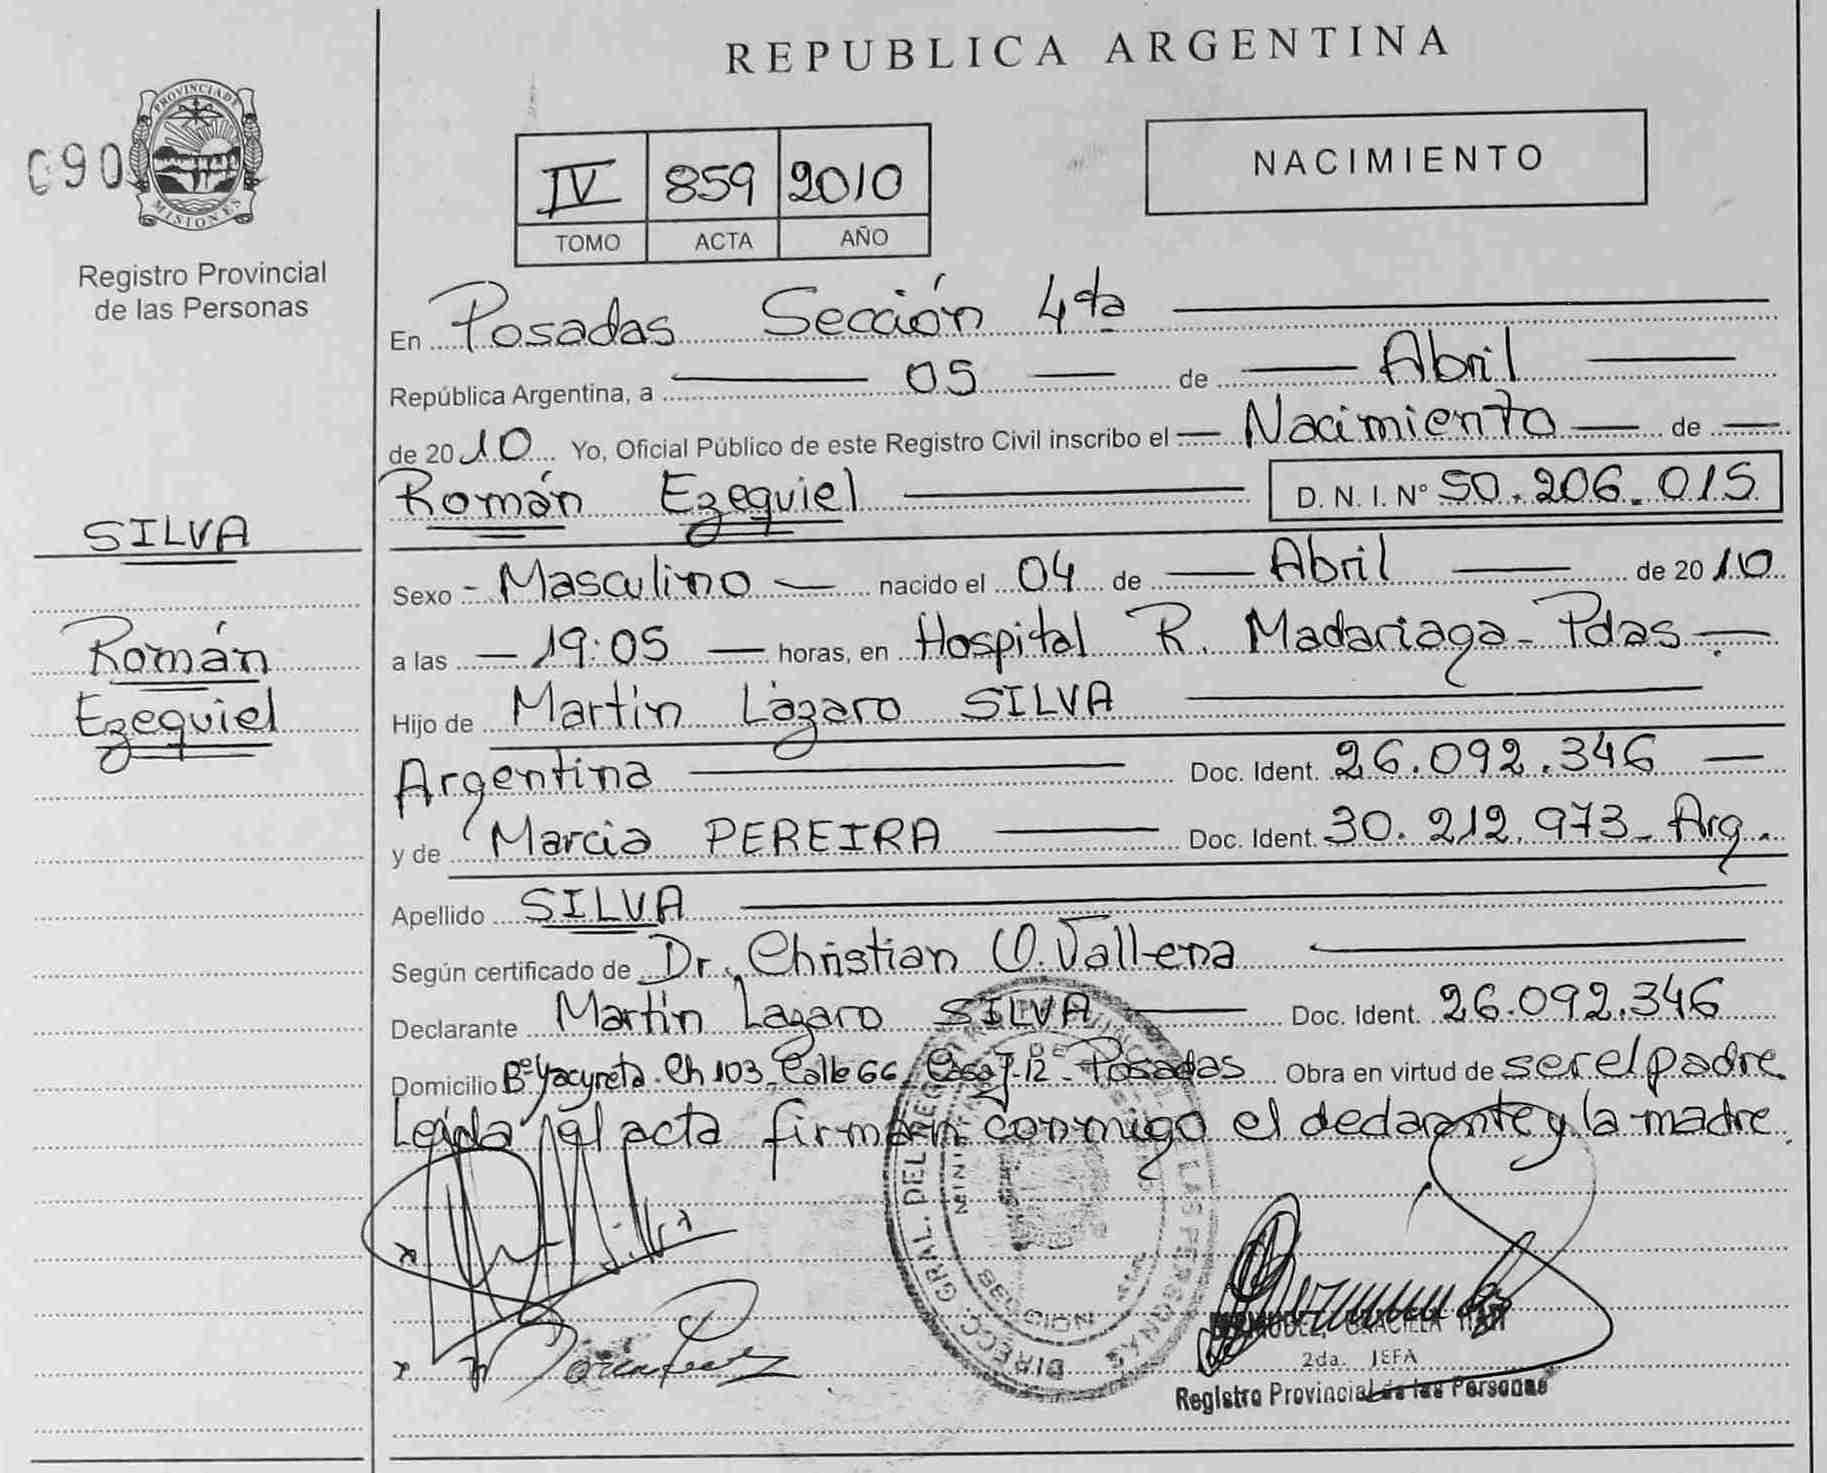 REPUBLICA ARGENTINA
PROVINCIA DE
MISIONES
C90
Registro Provincial
de las Personas
IV 859 2010
TOMO ACTA AÑO
NACIMIENTO
En Posadas Sección 4ta
República Argentina, a 05 de Abril
de 2010 Yo, Oficial Público de este Registro Civil inscribo el Nacimiento de
Román Ezequiel D.N.I. Nº 50.206.015
SILVA
Román
Ezequiel
Sexo - Masculino - nacido el 04 de Abril de 2010
a las - 19:05 - horas, en Hospital R. Madariaga - Pdas -
Hijo de Martín Lázaro SILVA
Argentina Doc. Ident. 26.092.346
y de Marcia PEREIRA Doc. Ident. 30.212.973 - Arg.
Apellido SILVA
Según certificado de Dr. Christian O. Vallena
Declarante Martín Lazaro SILVA Doc. Ident. 26.092.346
Domicilio Bº Yacyreta. Ch 103 - Calle 66, Casa J-12 - Posadas Obra en virtud de ser el padre
Leída el acta firman conmigo el declarante y la madre.
DIRECC. GRAL. DEL REGISTRO PROVINCIAL DE LAS PERSONAS
GRACIELA
2da. JEFA
Registro Provincial de las Personas